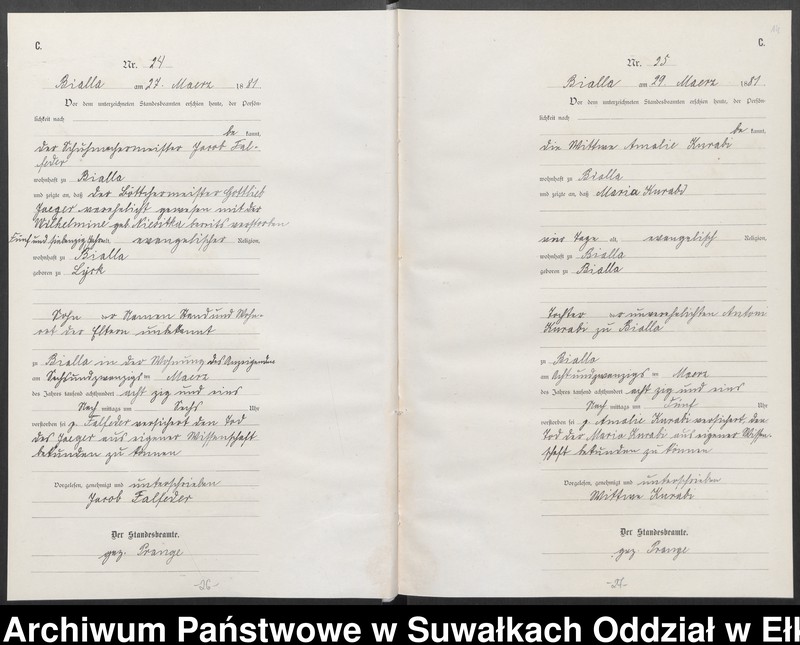 C.
Nr. 24
Bialla am 27. Maerz 1881
Vor dem unterzeichneten Standesbeamten erschien heute, der Persön-
lichkeit nach
be kannt,
der Schuhmachermeister Jacob Fal-
feder
wohnhaft zu Bialla
und zeigte an, daß der Böttchermeister Gottlieb
Jaeger verehelicht gewesen mit der
Wilhelmine geb. Niebitka bereits verstorben
Fünf und siebenzig Jahre alt, evangelischer Religion,
wohnhaft zu Bialla
geboren zu Lyck
Sohn er Namen Stand und Wohn-
ort der Eltern unbekannt
zu Bialla in der Wohnung des Anzeigenden
am Sechsundzwanzigsten Maerz
des Jahres tausend achthundert acht zig und eins
Nach mittags um Sechs Uhr
verstorben sei g. Falfeder versichert den Tod
des Jaeger aus eigener Wissenschaft
bekunden zu können
Vorgelesen, genehmigt und unterschrieben
Jacob Falfeder
Der Standesbeamte.
gez. Prange
-26-
C.
Nr. 25
Bialla am 29. Maerz 1881
Vor dem unterzeichneten Standesbeamten erschien heute, der Persön-
lichkeit nach
be kannt,
die Wittwe Amalie Kurabi
wohnhaft zu Bialla
und zeigte an, daß Maria Kurabi
vier Tage alt, evangelisch Religion,
wohnhaft zu Bialla
geboren zu Bialla
Tochter er unverehelichten Antoni
Kurabi zu Bialla
zu Bialla
am Achtundzwanzigs ten Maerz
des Jahres tausend achthundert acht zig und eins
Nach mittags um Fünf Uhr
verstorben sei g. Amalie Kurabi versichert, den
Tod der Maria Kurabi aus eigener Wissen-
schaft bekunden zu können
Vorgelesen, genehmigt und unterschrieben
Wittwe Kurabi
Der Standesbeamte.
gez. Prange
-27-
Archiwum Państwowe w Suwałkach Oddział w Ełk